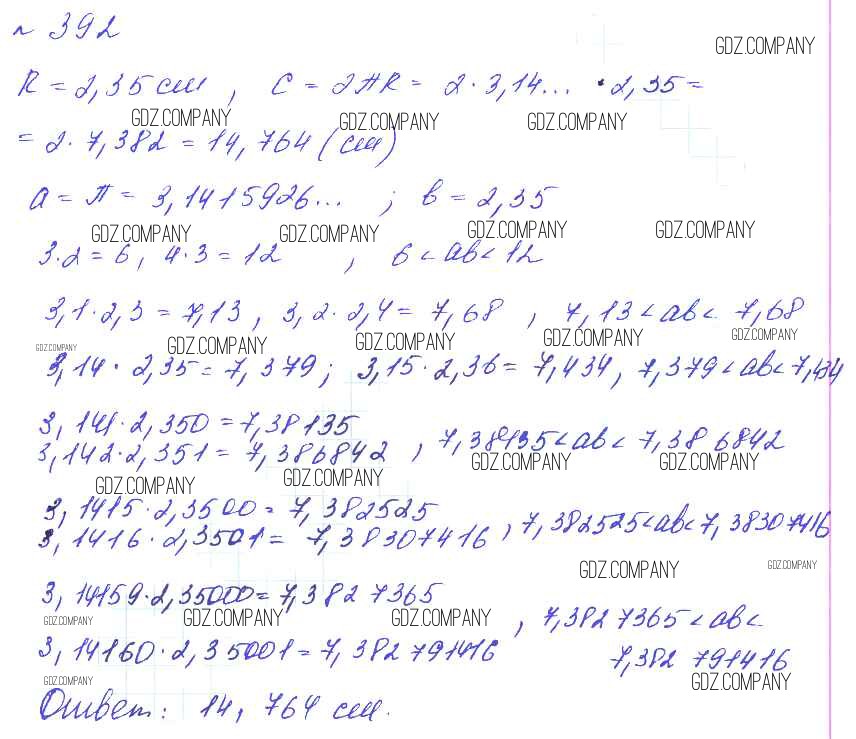 № 392
GDZ.COMPANY
R = 2,35 см , C = 2ПR = 2 · 3,14... · 2,35 =
GDZ.COMPANY GDZ.COMPANY GDZ.COMPANY
= 2 · 7,382 = 14,764 (см)
a = π = 3,1415926... ; b = 2,35
GDZ.COMPANY GDZ.COMPANY GDZ.COMPANY GDZ.COMPANY
3·2 = 6, 4·3 = 12 , 6 < ab < 12
3,1 · 2,3 = 7,13 , 3,2 · 2,4 = 7,68 , 7,13 < ab < 7,68
GDZ.COMPANY GDZ.COMPANY GDZ.COMPANY GDZ.COMPANY GDZ.COMPANY
3,14 · 2,35 = 7,379 ; 3,15 · 2,36 = 7,434 , 7,379 < ab < 7,434
3,141 · 2,350 = 7,38135
3,142 · 2,351 = 7,386842 , 7,38135 < ab < 7,386842
GDZ.COMPANY GDZ.COMPANY GDZ.COMPANY GDZ.COMPANY
3,1415 · 2,3500 = 7,382525
3,1416 · 2,3501 = 7,38307416 , 7,382525 < ab < 7,38307416
GDZ.COMPANY GDZ.COMPANY
3,14159 · 2,35000 = 7,3827365
GDZ.COMPANY GDZ.COMPANY GDZ.COMPANY
, 7,3827365 < ab <
3,14160 · 2,35001 = 7,382791416
7,382791416
GDZ.COMPANY GDZ.COMPANY
Ответ: 14,764 см.